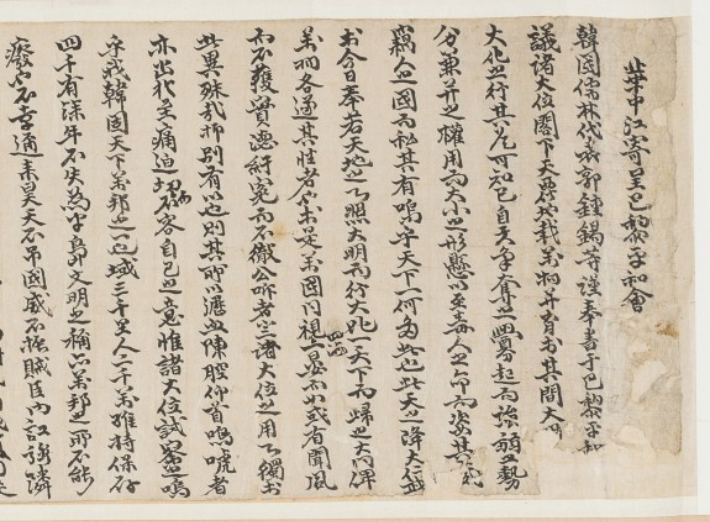 中江寄呈巴黎平和會
韓國儒林代表郭鍾錫等謹奉書于巴黎平和
議諸大位閣下天覆地載萬物并育於其間大
大化之行其道可知已自夫爭奪之釁起而強弱之勢
分兼并之權用而大小之形懸以至毒人之命而姿其威
竊人之國而私其有嗚乎天下一何多此也此天之降大位
於今日奉若天地之心照大明而行大化一天下而歸之大同俾
萬物各遂其性者於是萬國同視四海一晷而如或有聞風
而不獲實德紆寃而不徹公聽者豈諸大位之用心獨於
此異殊哉抑別有以也則其所以瀝血陳腔仰首鳴唬者
亦出於至痛迫切而不容自已之意惟諸大位試察之嗚
乎我韓固天下萬邦之一也域三千里人二千萬維持保存
四千有餘年不失爲半島文明之稱亦萬邦之所不能
廢也不幸邇來昊天不弔國威不振賊臣內訌強隣